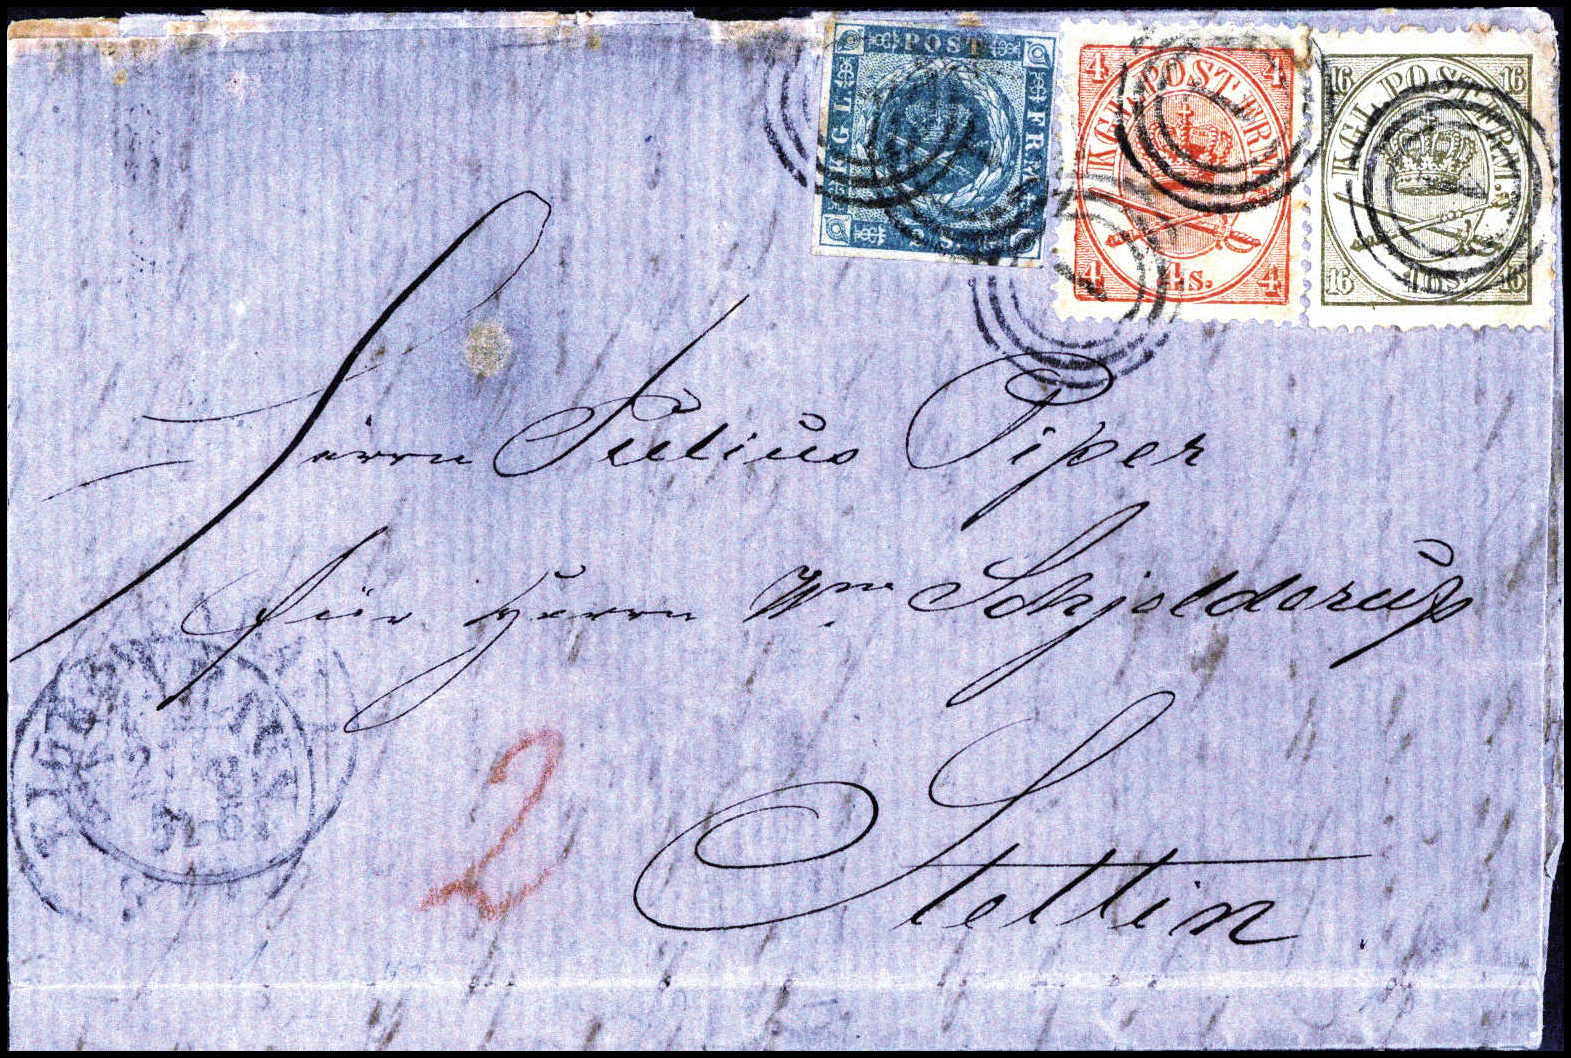 KGL POST FRM
2 S.
4 4
KGL. POST FRM
4 4s. 4
16 16
KGL. POST FRM.
16 16 s. 16
Herrn Julius Piper
für Herrn Wm. Schjolderup
Stettin.
2